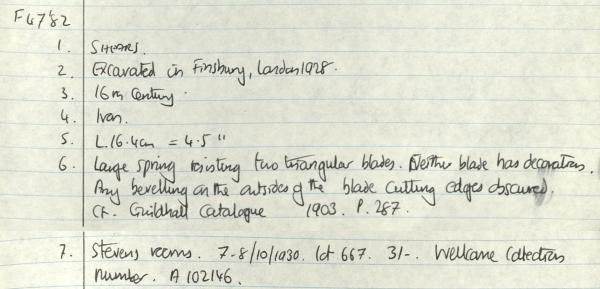 F4782
1. SHEARS.
2. Excavated in Finsbury, London 1928.
3. 16th Century.
4. Iron.
5. L. 16.4cm = 4.5"
6. Large spring resisting two triangular blades. Neither blade has decoration.
Any bevelling on the outsides of the blade cutting edges obscured.
Cf. Guildhall Catalogue 1903. P. 287.
7. Stevens rooms. 7-8/10/1930. lot 667. 3/-. Wellcome Collections
number. A 102146.